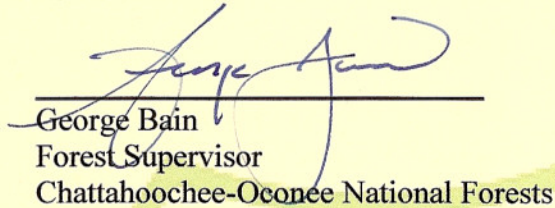 George Bain
Forest Supervisor
Chattahoochee-Oconee National Forests